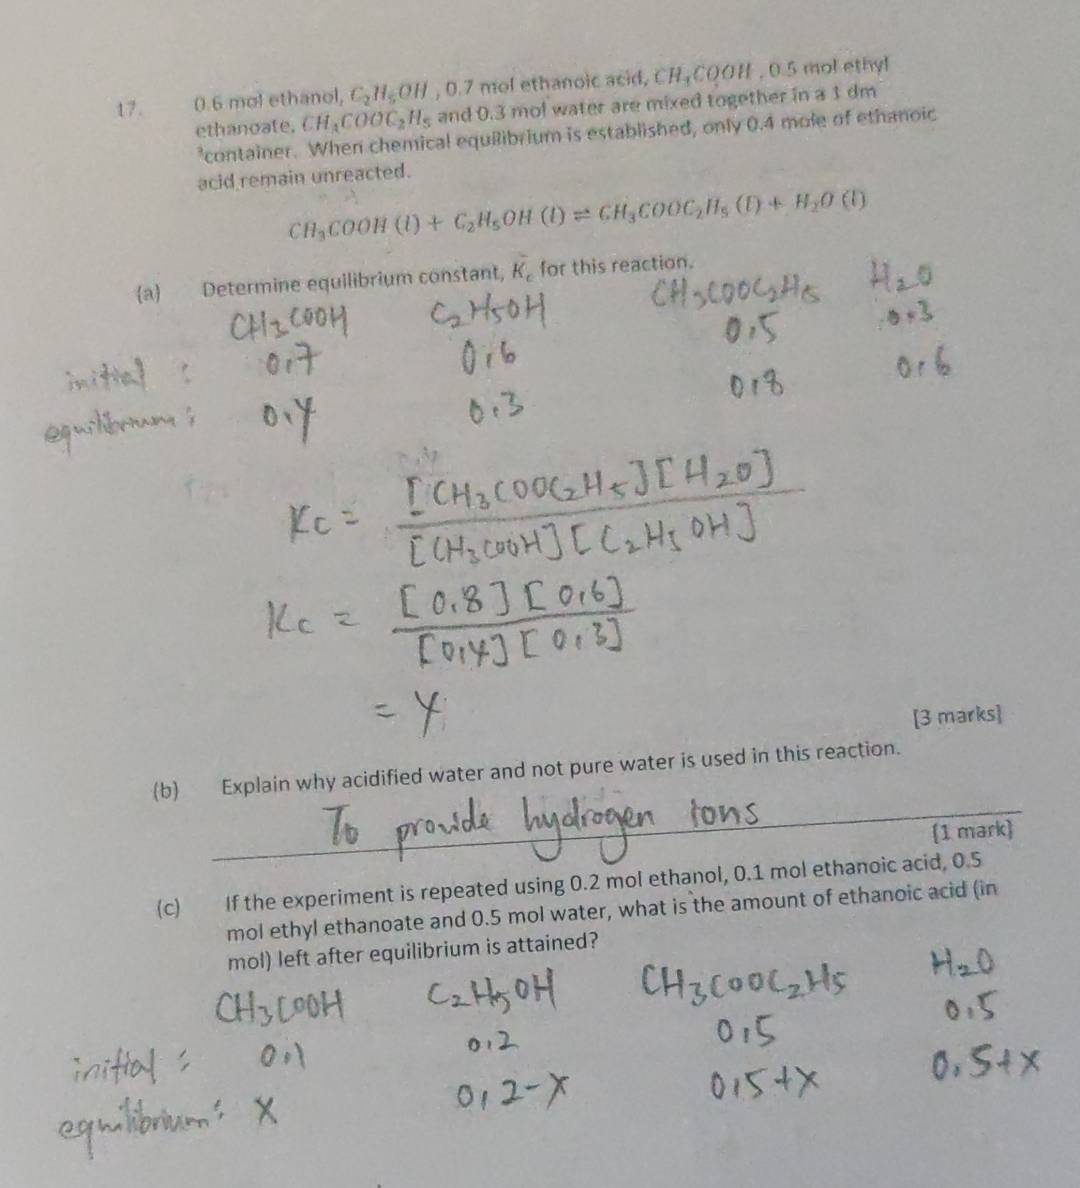 17. 0.6 mol ethanol, C₂H₅OH , 0.7 mol ethanoic acid, CH₃COOH , 0.5 mol ethyl
ethanoate, CH₃COOC₂H₅ and 0.3 mol water are mixed together in a 1 dm
³container. When chemical equilibrium is established, only 0.4 mole of ethanoic
acid remain unreacted.
CH₃COOH (l) + C₂H₅OH (l) ⇌ CH₃COOC₂H₅ (l) + H₂O (l)
(a) Determine equilibrium constant, K_c for this reaction.
CH₃COOH C₂H₅OH CH₃COOC₂H₅ H₂O
initial : 0.7 0.6 0.5 0.3
equilibrium : 0.4 0.3 0.8 0.6
Kc = [CH₃COOC₂H₅][H₂O] / [CH₃COOH][C₂H₅OH]
Kc = [0.8][0.6] / [0.4][0.3]
= 4
[3 marks]
(b) Explain why acidified water and not pure water is used in this reaction.
To provide hydrogen ions
[1 mark]
(c) If the experiment is repeated using 0.2 mol ethanol, 0.1 mol ethanoic acid, 0.5
mol ethyl ethanoate and 0.5 mol water, what is the amount of ethanoic acid (in
mol) left after equilibrium is attained?
CH₃COOH C₂H₅OH CH₃COOC₂H₅ H₂O
initial : 0.1 0.2 0.5 0.5
equilibrium : x 0.2-x 0.5+x 0.5+x